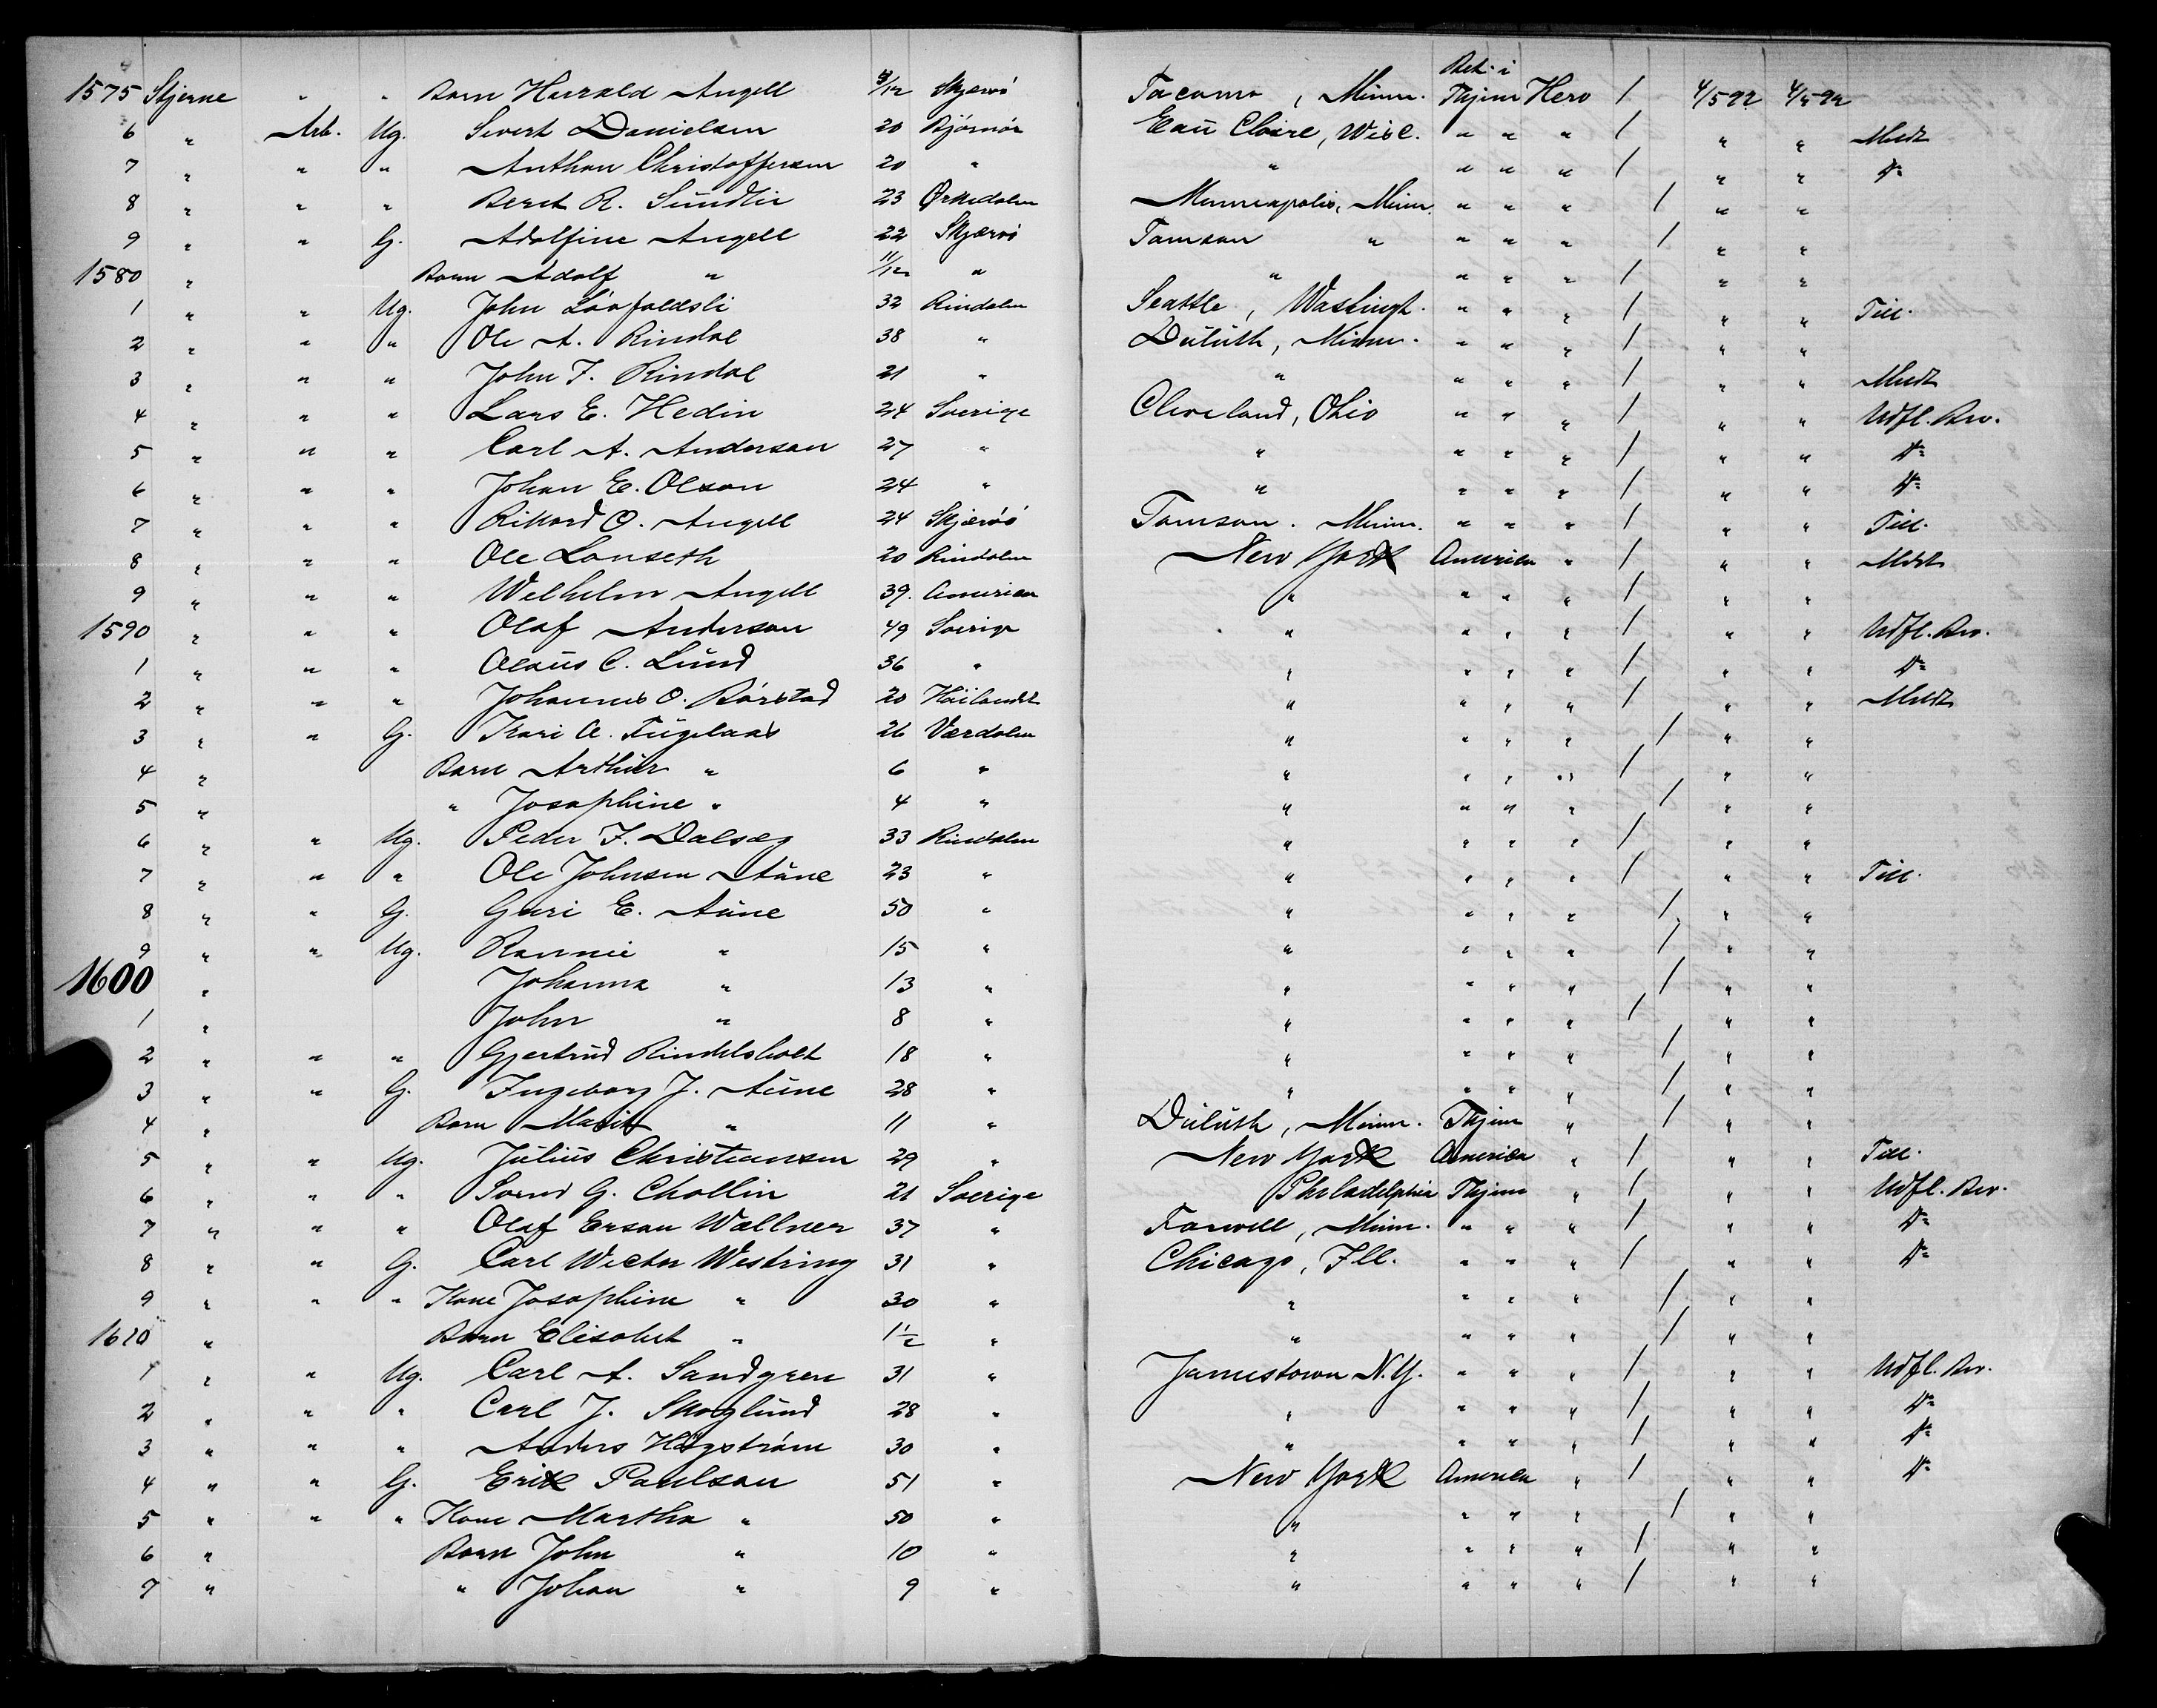 Bet. i
1575 Stjerne " " Barn Harrald Angell 3/12 Skjærvö Tacoma, Minn. Thjem Hero / 4/5 92 4/5 92
6 " Arb. Ug. Sivert Danielsen 20 Björnör Eau Claire, Wisc. " " " / " " Meldt
7 " " " Anthon Christoffersen 20 " " " " " / " " Do
8 " " " Beret R. Sundli 23 Orkedalen Minneapolis, Minn. " " " / " "
9 " " G. Adolfine Angell 22 Skjærvö Tomson " " " " / " "
1580 " Barn Adolf " 11/12 " " " " " / " "
1 " " Ug. John Lövfaldsli 32 Rindalen Seattle, Washingt. " " " / " " Till.
2 " " " Ole A. Rindal 38 " Duluth, Minn. " " " / " "
3 " " " John J. Rindal 21 " " " " " / " " Meldt
4 " " " Lars E. Hedin 24 Sverige Cleveland, Ohio " " " / " " Udfl. Bev.
5 " " " Carl A. Anderson 27 " " " " " / " " Do
6 " " " Johan E. Olson 24 " " " " " / " " Do
7 " " " Rikard O. Angell 24 Skjærvö Tomson. Minn. " " " / " " Till.
8 " " " Ole Lanseth 20 Rindalen New York Amerika " / " " Meldt
9 " " " Welhelm Angell 39. Amerika " " " " / " "
1590 " " " Olaf Anderson 49 Sverige " " " " / " " Udfl. Bev.
1 " " " Olaus C. Lund 36 " " " " " / " " Do
2 " " " Johannes O. Bårstad 20 Höilandet " " " " / " " Meldt
3 " " G. Kari A. Fuglaas 26 Værdalen " " " " / " "
4 " Barn Arthur " 6 " " " " " / " "
5 " " Josephine " 4 " " " " " / " "
6 " " Ug. Peder J. Dalsæg 33 Rindalen " " " " / " "
7 " " " Ole Johnsen Aune 23 " " " " " / " " Till.
8 " " G. Guri E. Aune 50 " " " " " / " "
9 " " Ug. Rannie " 15 " " " " " / " "
1600 " Johanna " 13 " " " " " / " "
1 " John " 8 " " " " " / " "
2 " " " Gjertrud Rindelsholt 18 " " " " " / " "
3 " " G. Ingeborg J. Aune 28 " " " " " / " "
4 " Barn Marit " 11 " Duluth, Minn. Thjem " / " "
5 " " Ug. Julius Christiansen 29 " New York Amerika " / " " Till.
6 " " " Svend G. Chollin 21 Sverige Philadelphia Thjem " / " " Udfl. Bev.
7 " " " Olaf Erson Wallner 37 " Farwell, Minn. " " " / " " Do
8 " " G. Carl Wictor Westring 31 " Chicago, Ill. " " " / " " Do
9 " " " Kone Josephine " 30 " " " " " / " "
1610 " Barn Elisabet " 1 1/2 " " " " " / " "
1 " " Ug. Carl A. Sandgren 31 " Jamestown N.Y. " " " / " " Udfl. Bev.
2 " " " Carl J. Skoglund 28 " " " " " / " " Do
3 " " " Anders Högström 30 " " " " " / " " Do
4 " " G. Erik Paulson 51 " New York Amerika " / " " Do
5 " " " Kone Martha " 50 " " " " " / " "
6 " Barn John " 10 " " " " " / " "
7 " " Johan " 9 " " " " " / " "